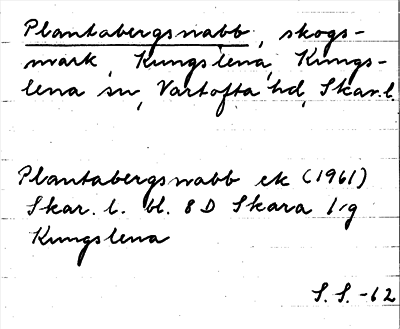 Plantabergsnabb, skogs-
mark, Kungslena, Kungs-
lena sn, Vartofta hd, Skar.l.
Plantabergsnabb ek (1961)
Skar. l. bl. 8 D Skara 1:g
Kungslena
S. S. -62